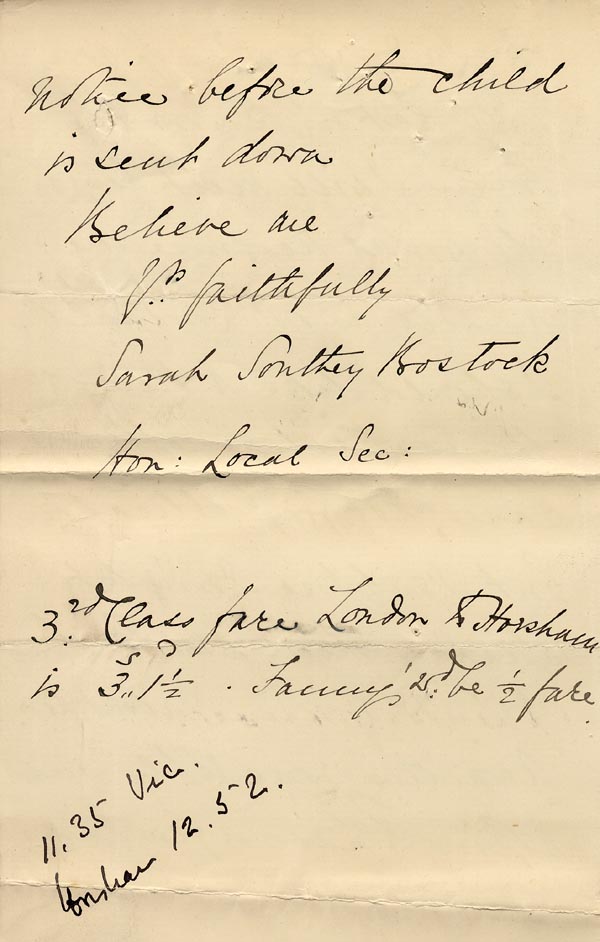 notice before the child
is sent down
Believe me
Yrs. faithfully
Sarah Southey Bostock
Hon: Local Sec:
3rd. Class fare London to Horsham
is 3s,, 1½D. Fanny's wd. be ½ fare
11.35 Vic.
Horsham 12.52.